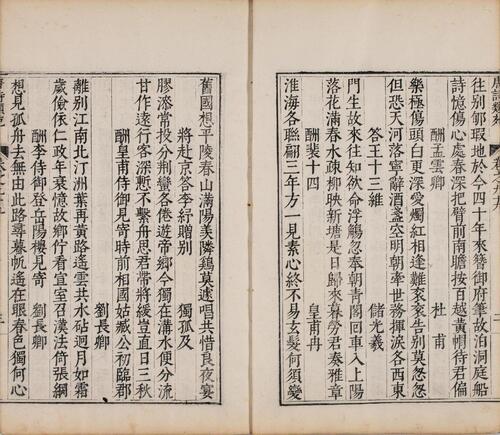 往別郇瑕地於今四十年來簪御府筆故泊洞庭船
詩憶傷心處春深把臂前南瞻按百越黃帽待君偏
酬孟雲卿 杜甫
樂極傷頭白更深愛燭紅相逢難袞袞告別莫怱怱
但恐天河落寧辭酒盞空明朝牽世務揮淚各西東
答王十三維 儲光羲
門生故來往知欲命浮觴忽奉朝青閣回車入上陽
落花滿春水疎柳映新塘是日歸來暮勞君奏雅章
酬裴十四 皇甫冉
淮海各聯翩三年方一見素心終不易玄髮何須變
舊國想平陵春山滿陽羨隣鷄莫遽唱共惜良夜宴
將赴京答李紓贈別 獨孤及
膠漆常投分荆蠻各倦遊帝鄉今獨在溝水便分流
甘作遠行客深慙不繫舟思君帶將緩豈直日三秋
酬皇甫侍御見寄時前相國姑臧公初臨郡
劉長卿
離別江南北汀洲葉再黃路遙雲共水砧迥月如霜
歲儉依仁政年衰憶故鄉佇看宣室召漢法倚張綱
酬李侍御登岳陽樓見寄 劉長卿
想見孤舟去無由此路尋暮帆遙在眼春色獨何心